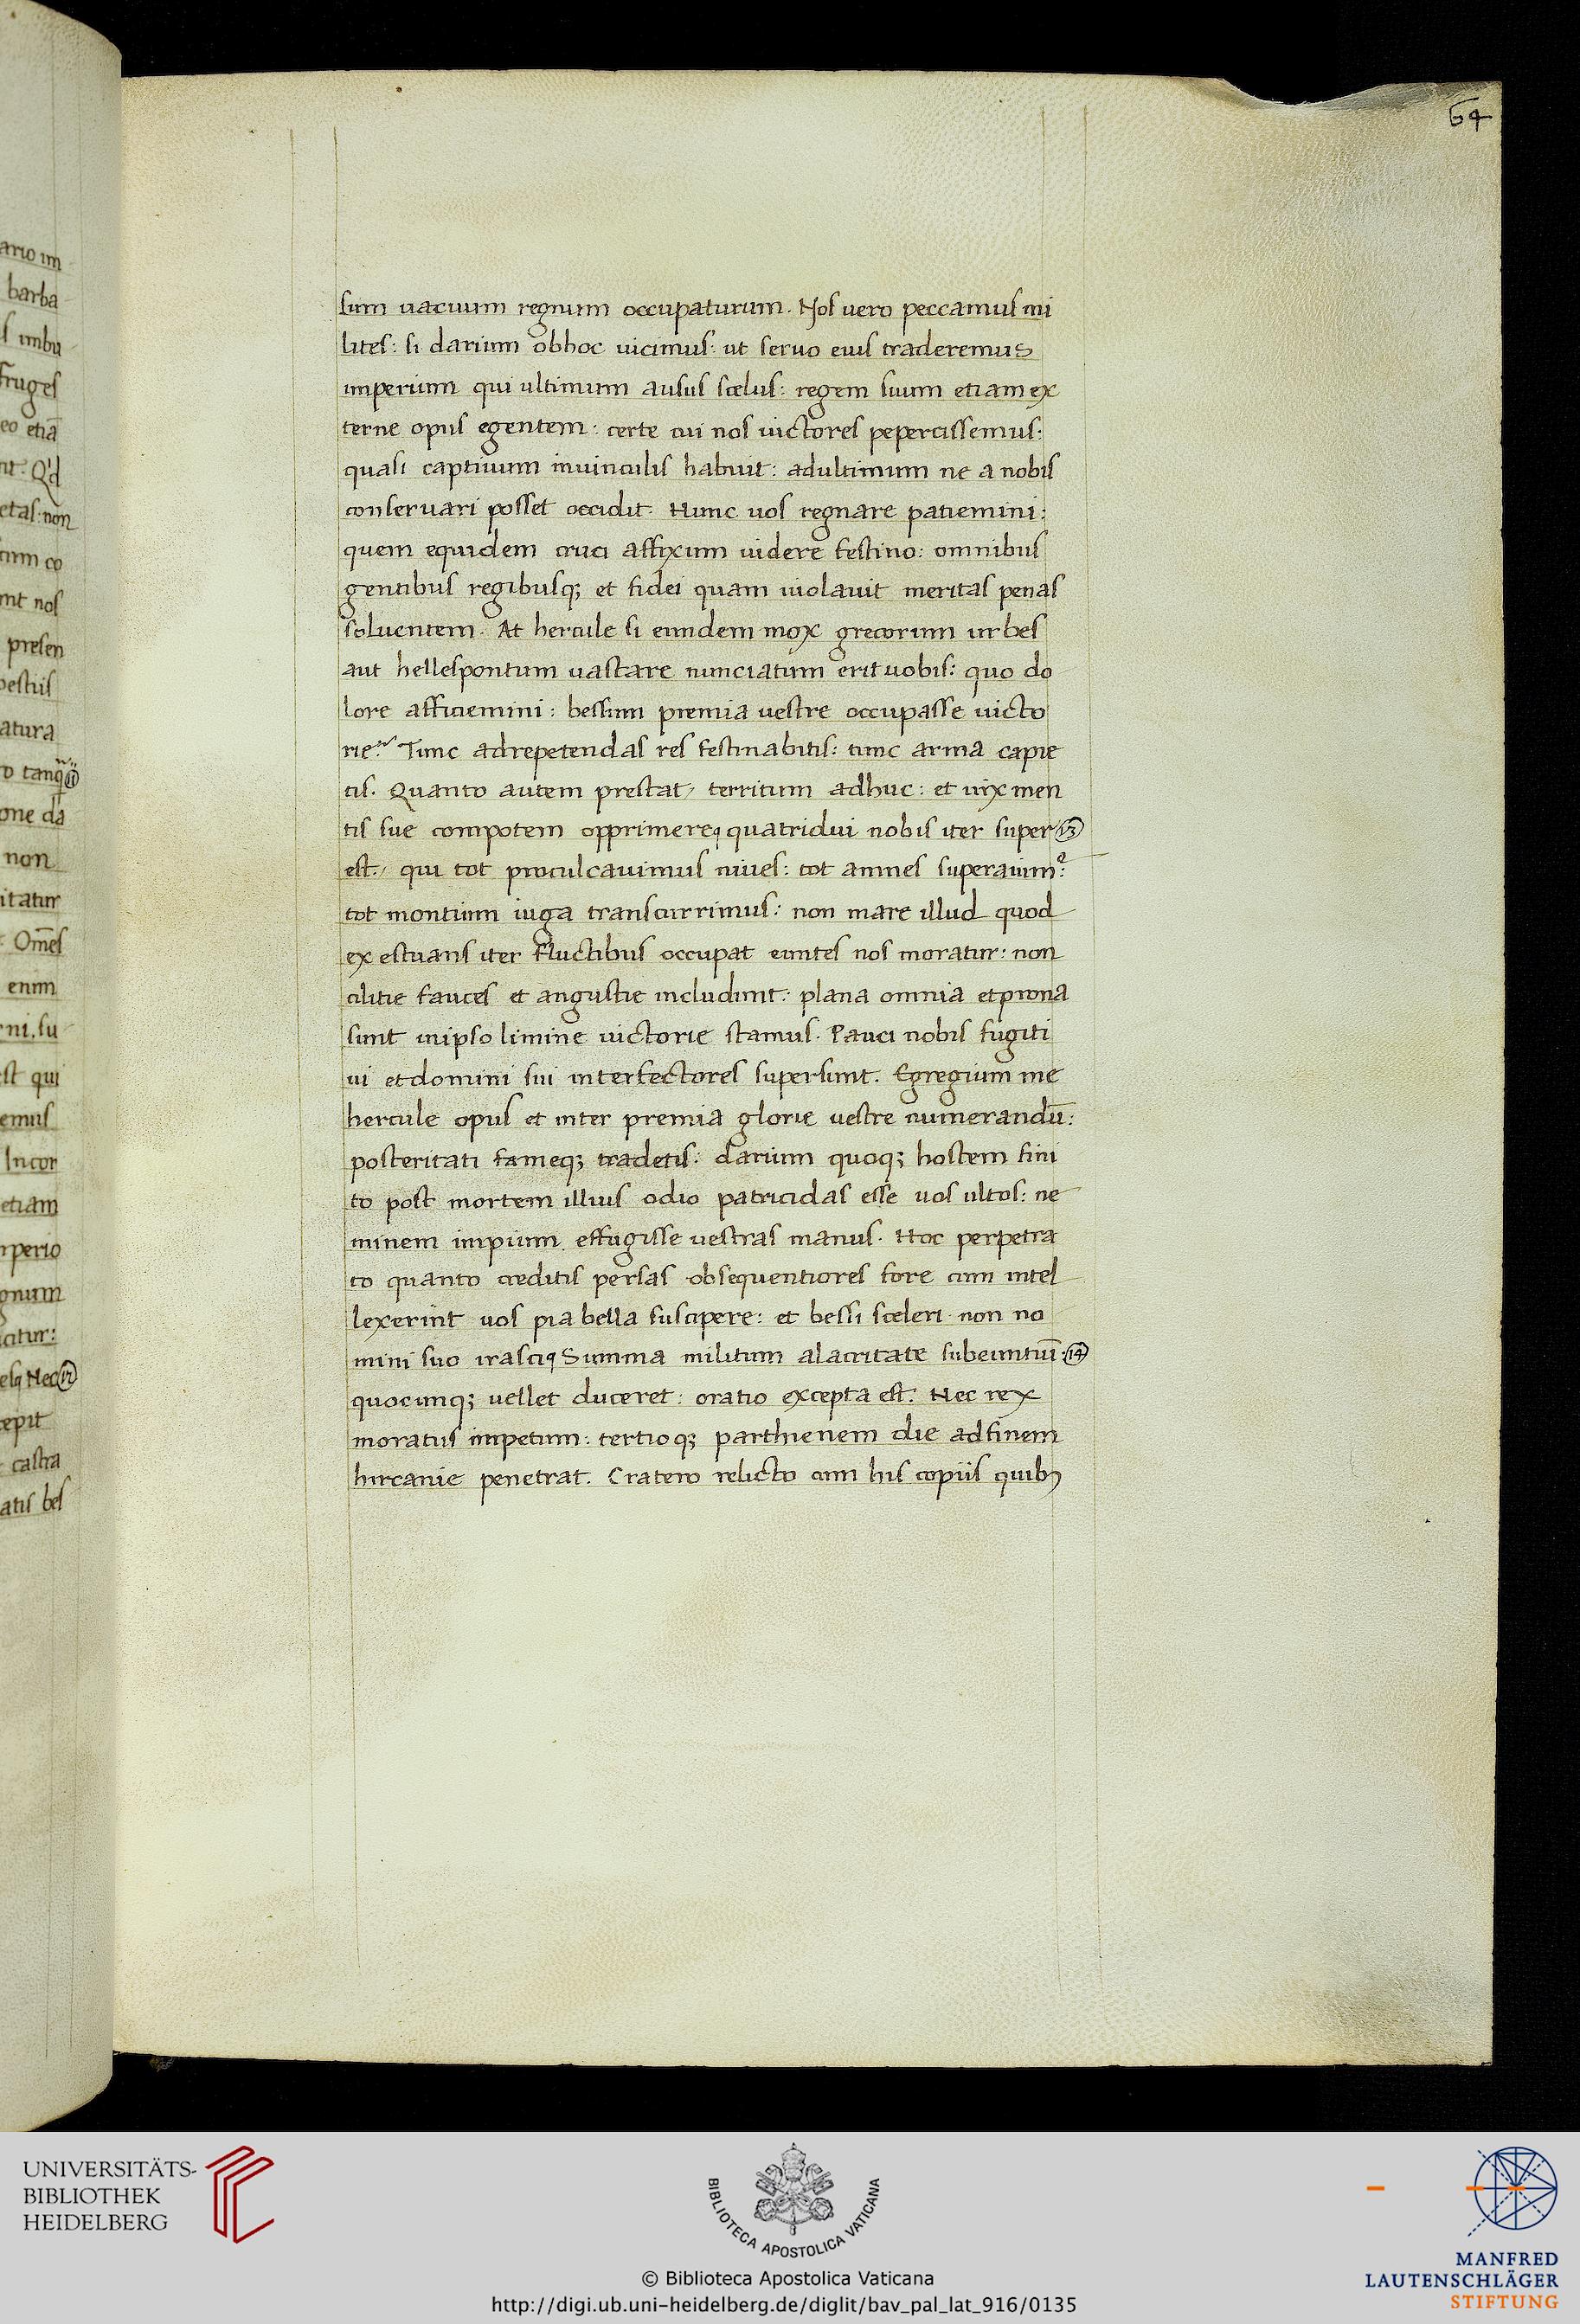 64
ario im
barba
s imbu
fruges
eo etiā
nt. Qd
etas: non
tum co
unt nos
presen
uestiis
atura
o tanq̄ 11
one da
non
itatur
: Om̄es
enim
rni. su
st qui
emus
Incor
etiam
mperio
gnum
citur:
Nec 12
cepit
castra
atis bes
sum uacuum regnum occupaturum. Nos uero peccamus mi
lites: si darium obhoc uicimus: ut seruo eius traderemus
imperium qui ultimum ausus scelus: regem suum etiam ex
terne opus egentem: certe cui nos uictores pepercissemus:
quasi captiuum inuinculis habuit: adultimum ne a nobis
conseruari posset occidit. Hunc uos regnare patiemini:
quem equidem cruci affixum uidere festino: omnibus
gentibus regibusq; et fidei quam uiolauit meritas penas
soluentem. At hercule si eundem mox grecorum urbes
aut hellespontum uastare nunciatum erit uobis: quo do
lore afficiemini: bessum premia uestre occupasse uicto
rie? Tunc adrepetendas res festinabitis: tunc arma capie
tis. Quanto autem prestat, territum adhuc: et uix men
tis sue compotem opprimere, quatridui nobis iter super 13
est., qui tot proculcauimus niues: tot amnes superauim9:
tot montium iuga transcurrimus: non mare illud quod
ex estuans iter fluctibus occupat euntes nos moratur: non
cilitie fauces et angustie includunt: plana omnia et prona
sunt inipso limine uictorie stamus. Pauci nobis fugiti
ui et domini sui interfectores supersunt. Egregium me
hercule opus et inter premia glorie uestre numerandū:
posteritati fameq; tradetis: darium quoq; hostem fini
to post mortem illius odio patricidas esse uos ultos: ne
minem impium effugisse uestras manus. Hoc perpetra
to quanto creditis persas obsequentiores fore cum intel
lexerint uos pia bella suscipere: et bessi sceleri non no
mini suo irasci, Summa militum alacritate subeuntiū: 14
quocunq; uellet duceret: oratio excepta est. Nec rex
moratus impetum: tertioq; parthienem die adfinem
hircanie penetrat. Cratero relicto cum his copiis quib9
UNIVERSITÄTS-
BIBLIOTHEK
HEIDELBERG
BIBLIOTECA APOSTOLICA VATICANA
© Biblioteca Apostolica Vaticana
http://digi.ub.uni-heidelberg.de/diglit/bav_pal_lat_916/0135
MANFRED
LAUTENSCHLÄGER
STIFTUNG